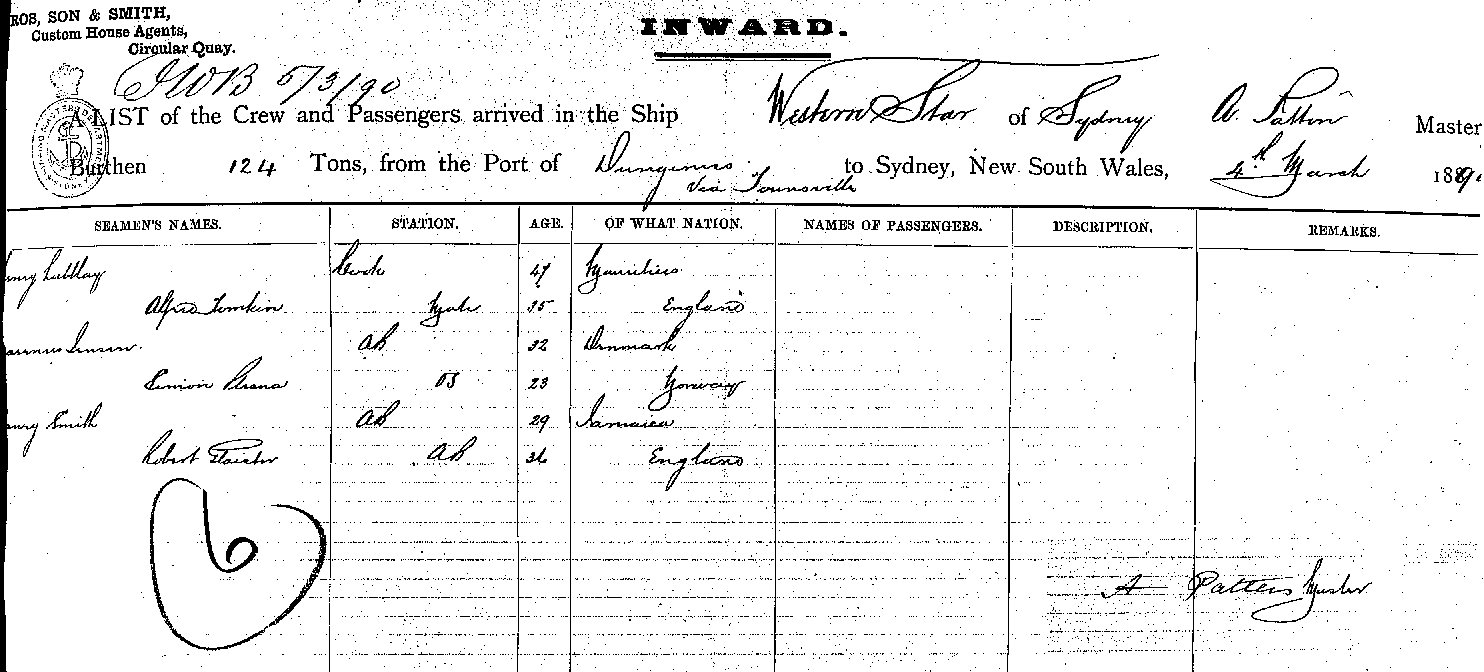 ROS, SON & SMITH,
Custom House Agents,
Circular Quay.
INWARD.
5/3/90
A LIST of the Crew and Passengers arrived in the Ship Western Star of Sydney A. Patton Master
Burthen 124 Tons, from the Port of Dungeness to Sydney, New South Wales, 4th March 1890
Via Townsville
SEAMEN'S NAMES. STATION. AGE. OF WHAT NATION. NAMES OF PASSENGERS. DESCRIPTION. REMARKS.
Cook 47 Mauritius
Alfred Tomkin Mate 35 England
Jensen AB 32 Denmark
Simion OS 23 Norway
enry Smith AB 29 Jamaica
Robert AB 36 England
6
A Patten Master